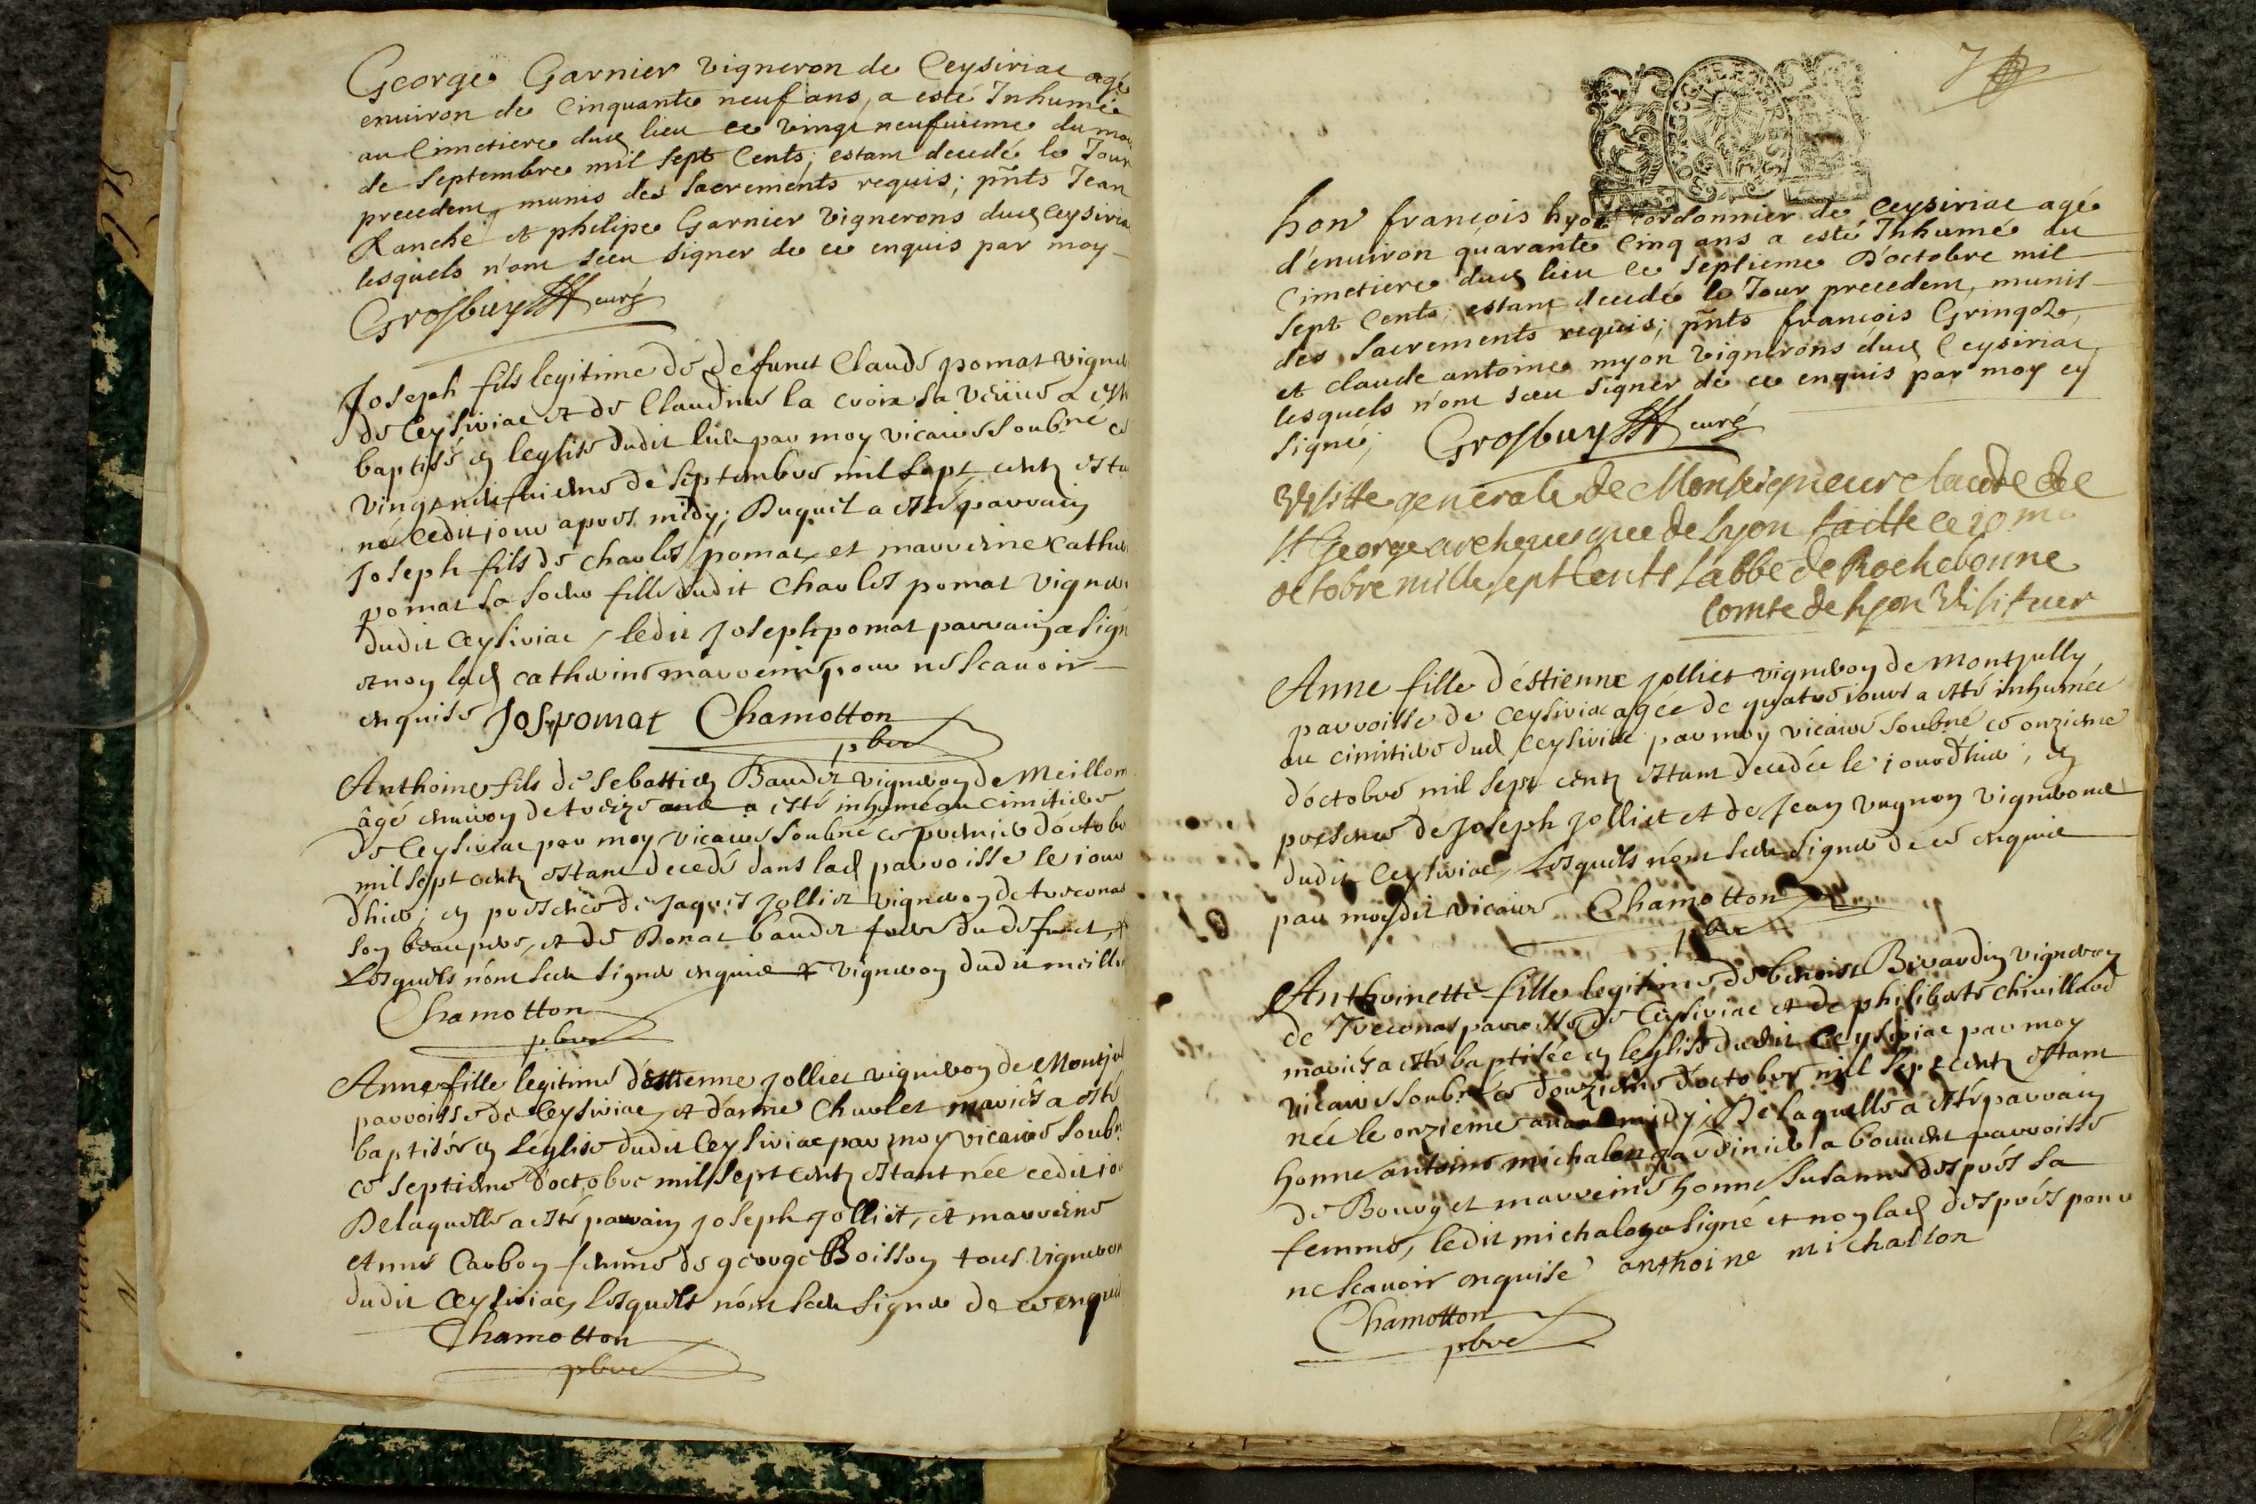 George Garnier vigneron de Ceysiriac agé
enuiron de Cinquante neuf ans, a esté Inhumé
au Cimetiere dud lieu ce vingt neufuieme du moi
de Septembre mil sept Cents, estant decedé le Jour
precedent, munis des Sacrements requis; pnts Jean
Ranche et philipe Garnier vignerons dud Ceysiria
lesquels n'ont sceu signer de ce enquis par moy
Grosbuy curé
Joseph fils legitime de defunct Claude pomat vigne
de Ceysiriac et de Claudine la croix sa veuue a esté
baptisé en leglise dudit lieu par moy vicaire soubné ce
vingt neufuieme de Septembre mil sept cents esta
né cedit jour apres midy; Duquel a esté parrain
Joseph fils de charles pomat, et marreine Cathe
pomat sa soeur fille dudit Charles pomat vigner
dudit Ceysiriac, ledit Joseph pomat parrain a sign
et non lad catherine marreine pour ne scauoir
enquise Jos pomat Chamotton
pbre
Anthoine fils de Sebastien Baudet vigneron de Meillon
âgé enuiron de treize ans a esté inhumé au cimitiere
de Ceysiriac par moy vicaire soubné ce premier d'octob
mil sept cents estant decedé dans lad parroisse le jour
d'hier; en presence de Jaques Jolliet vigneron de treconas
son beau pere, et de Donat baudet frere du defunct,
Lesquels n'ont sceu signer enquis vigneron dudit meillo
Chamotton
pbre
Anne fille legitime d'estienne Jolliet vigneron de Montju
parroisse de Ceysiriac, et d'anne Charlet mariés a esté
baptisée en Léglise dudit Ceysiriac par moy vicaire soubn
ce septieme d'octobre mil sept cents estant née cedit jo
De laquelle a esté parrain Joseph Jolliet, et marreine
Anne Carbon femme de george Boisson tous vigneron
dudit Ceysiriac, Lesquels n'ont sceu signer de ce enqui
Chamotton
pbre
7
hon françois hyot cordonnier de Ceysiriac agé
d'enuiron quarante Cinq ans a esté Inhumé au
Cimetiere dud lieu ce septieme d'octobre mil
sept Cents, estant decedé le Jour precedent, munis
des Sacrements requis; pnts françois Gringoz,
et claude antoine myon vignerons dud Ceysiriac,
lesquels n'ont sceu signer de ce enquis par moy cy
signé, Grosbuy curé
Visitte generale de Monseigneur claude de
St George archeuesque de Lyon faitte ce 10me
octobre mille sept Cents L'abbe de Rochebonne
Comte de Lyon Visiteur
Anne fille d'éstienne Jolliet vigneron de Montjully
parroisse de Ceysiriac agée de quatre jours a esté inhumée
au cimitiere dud Ceysiriac par moy vicaire soubné ce onzieme
d'octobre mil sept cents estant decedée le jour d'hier; en
presence de Joseph Jolliet et de Jean vugnon vignerons
dudit Ceysiriac, Lesquels n'ont sceu signer de ce enquis
par moydit vicaire Chamotton
pbre
Anthoinette fille legitime de benoist Berardin vigneron
de Treconas parroisse de Ceysiriac et de philiberte chiuillard
mariés a esté baptisée en leglise dudit Ceysiriac par moy
vicaire soubné ce douzieme d'octobre mil sept cents estant
née le onzieme auant midy, De laquelle a esté parrain
honne antoine michalon jardinier a bouuent parroisse
de Bourg et marreine honne Susanne després sa
femme, ledit michalon a signé et non lad després pour
ne scauoir enquise anthoine michallon
Chamotton
pbre